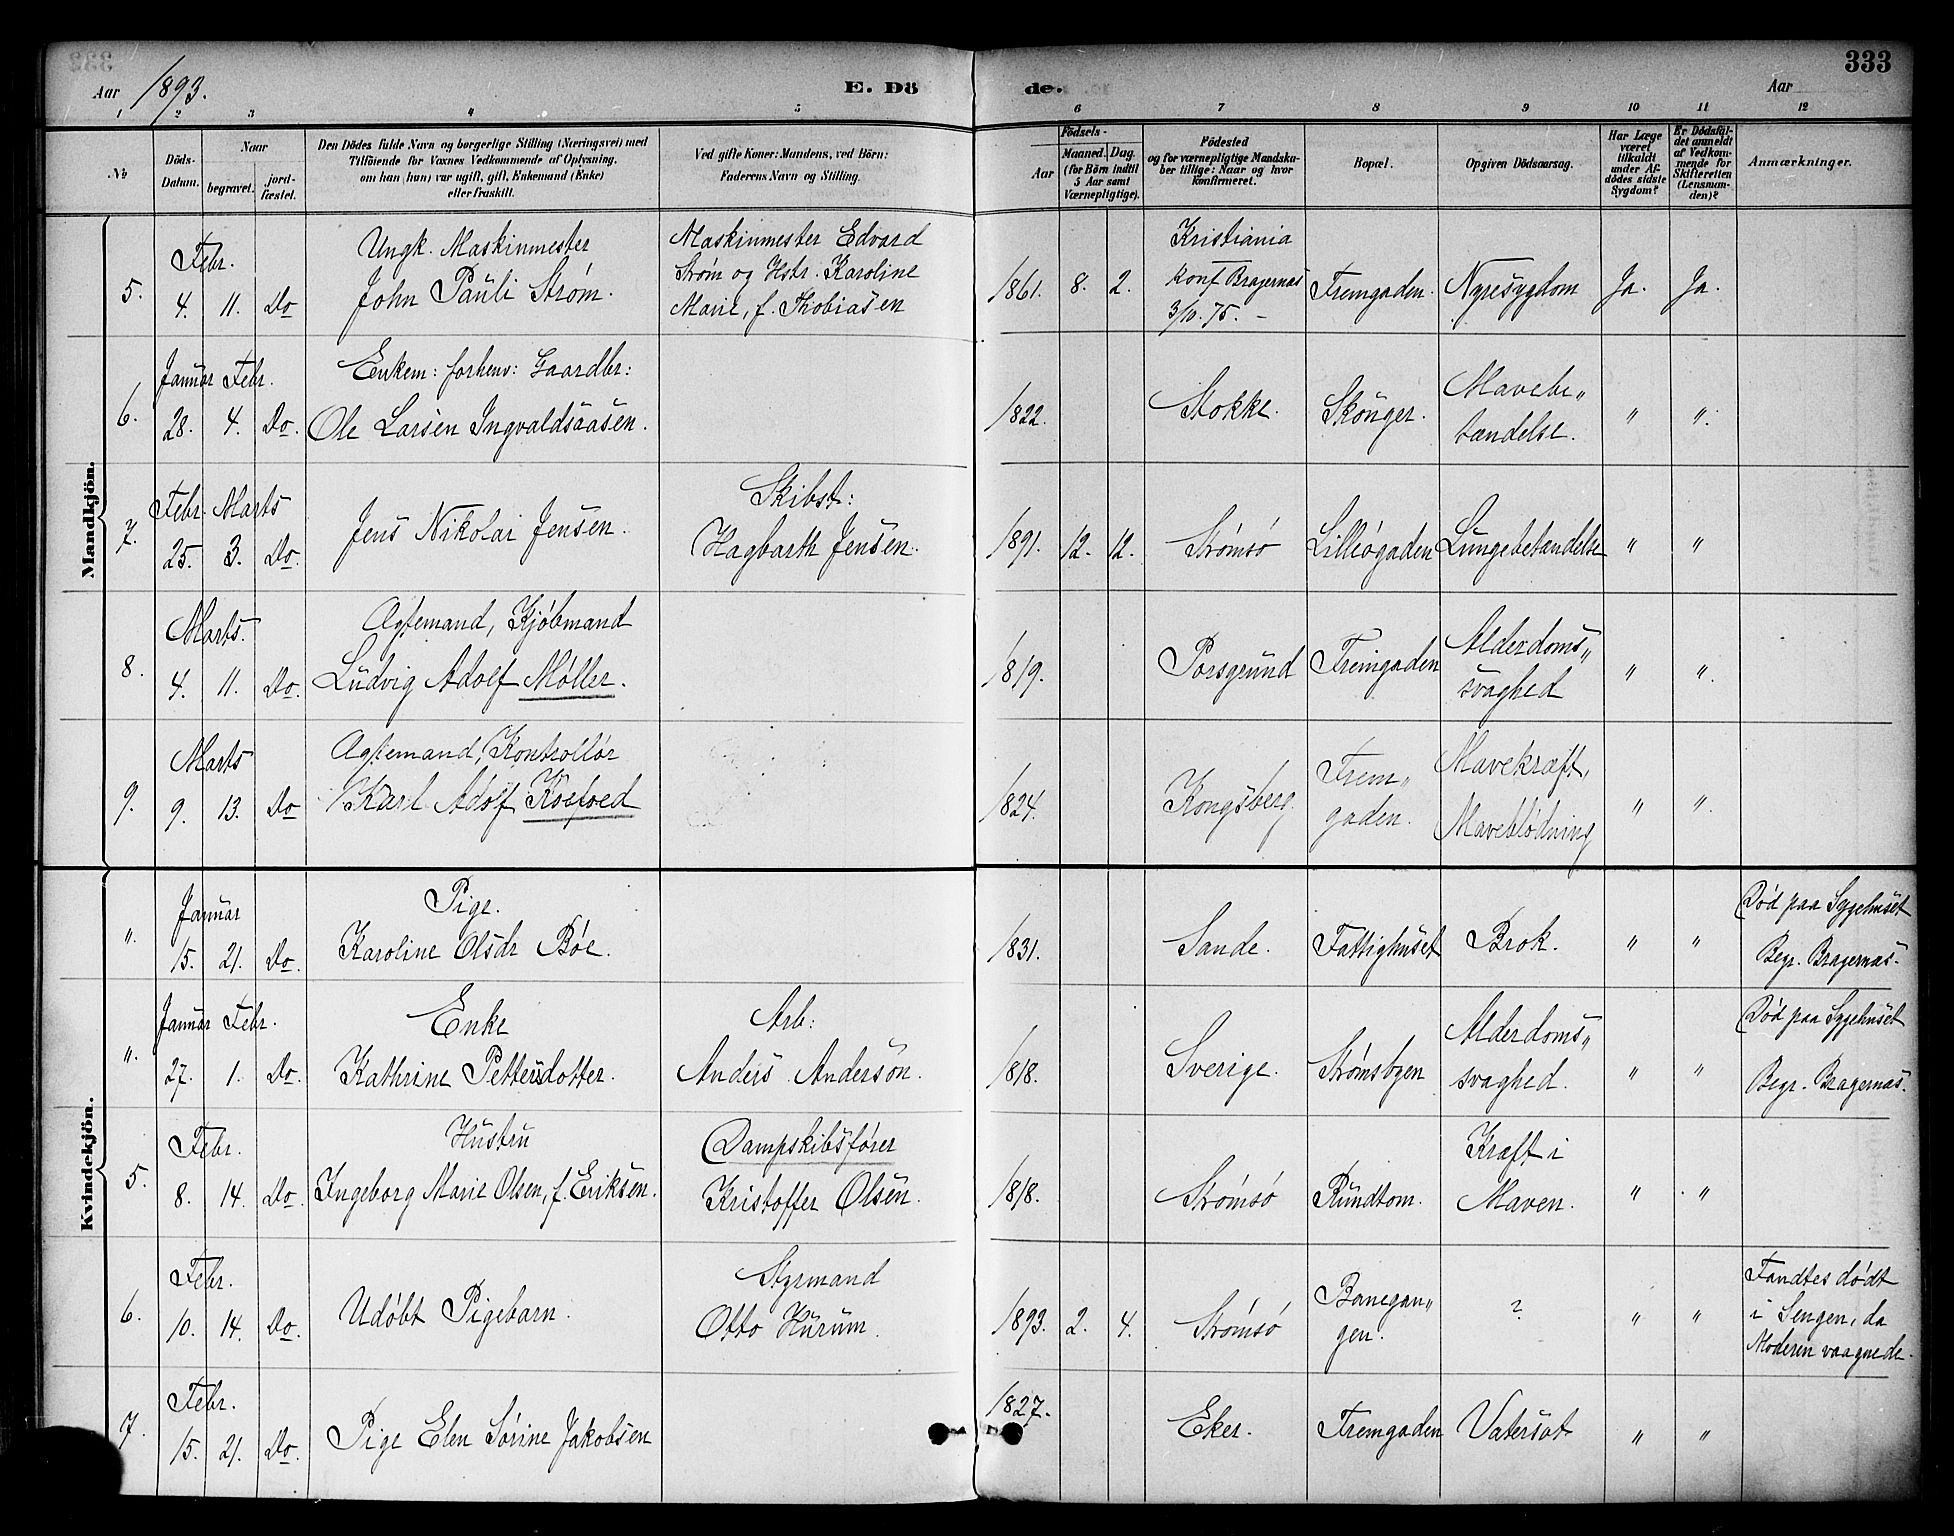 333
Aar 1893. E. Dö de. Aar
1 2 3 4 5 6 7 8 9 10 11 12
No
Döds-Datum.
Naar
begravet.
jord-fæstet.
Den Dödes fulde Navn og borgerlige Stilling (Næringsvei) med
Tilföiende for Voxnes Vedkommende af Oplysning,
om han (hun) var ugift, gift, Enkemand (Enke)
eller fraskilt.
Ved gifte Koner: Mandens, ved Börn:
Faderens Navn og Stilling.
Födsels-
Aar
Maaned. Dag.
(for Börn indtil
5 Aar samt
Værnepligtige).
Födested
og for værnepligtige Mandska-
ber tillige: Naar og hvor
konfirmeret.
Bopæl.
Opgiven Dödsaarsag.
Har Læge
været
tilkaldt
under Af-
dödes sidste
Sygdom?
Er Dödsfal-
det anmeldt
af Vedkom-
mende for
Skifteretten
(Lensman-
den)?
Anmærkninger.
Mandkjön.
5. Febr. 4. 11. Do
Ungk. Maskinmester
John Pauli Strøm.
Maskinmester Edvard
Strøm og Hstr. Karoline
Marie, f. Thobiasen
1861. 8. 2.
Kristiania
Konf Bragernæs
3/10. 75. –
Fremgaden. Nyresygdom Ja. Ja.
6. Januar 28. Febr. 4. Do.
Enkem: forhenv: Gaardbr:
Ole Larsen Ingvaldsaasen.
1822. Stokke. Skoger.
Mavebe„
tændelse.
" "
7. Febr. 25. Marts 3. Do.
Jens Nikolai Jensen.
Skibst:
Hagbarth Jensen.
1891. 12. 12. Strømsö Lilleøgaden Lungebetændelse " "
8. Marts. 4. 11. Do.
Ægtemand, Kjøbmand
Ludvig Adolf Møller.
1819. Porsgrund Fremgaden
Alderdoms„
svaghed
" "
9. Marts 9. 13. Do
Ægtemand, Kontrollør
Karl Adolf Koefoed
1824. Kongsberg.
Frem„
gaden.
Mavekræft,
Maveblødning
" "
Kvindekjön.
". Januar 15. 21. Do.
Pige.
Karoline Olsdr Bøe.
1831. Sande. Fattighuset Brok. " "
Død paa Sygehuset
Begr. Bragernæs.
". Januar 27. Febr. 1. Do.
Enke
Kathrine Pettersdotter.
Arb:
Anders Anderson.
1818. Sverige. Strømsbyen
Alderdoms„
svaghed.
" "
Død paa Sygehuset
Begr. Bragernæs.
5. Febr. 8. 14. Do.
Hustru
Ingeborg Marie Olsen, f. Eriksen.
Dampskibsfører
Kristoffer Olsen.
1818. Strømsö Rundtom.
Kræft i
Maven.
" "
6. Febr. 10. 14. Do.
Udøbt Pigebarn.
Styrmand
Otto Hurum.
1893. 2. 4. Strømsö
Banegan„
gen.
? " "
Fandtes dødt
i Sengen, da
Moderen vaagnede.
7. Febr. 15. 21. Do.
Pige Elen Sørine Jakobsen
1827. Eker. Fremgaden Vatersot " "